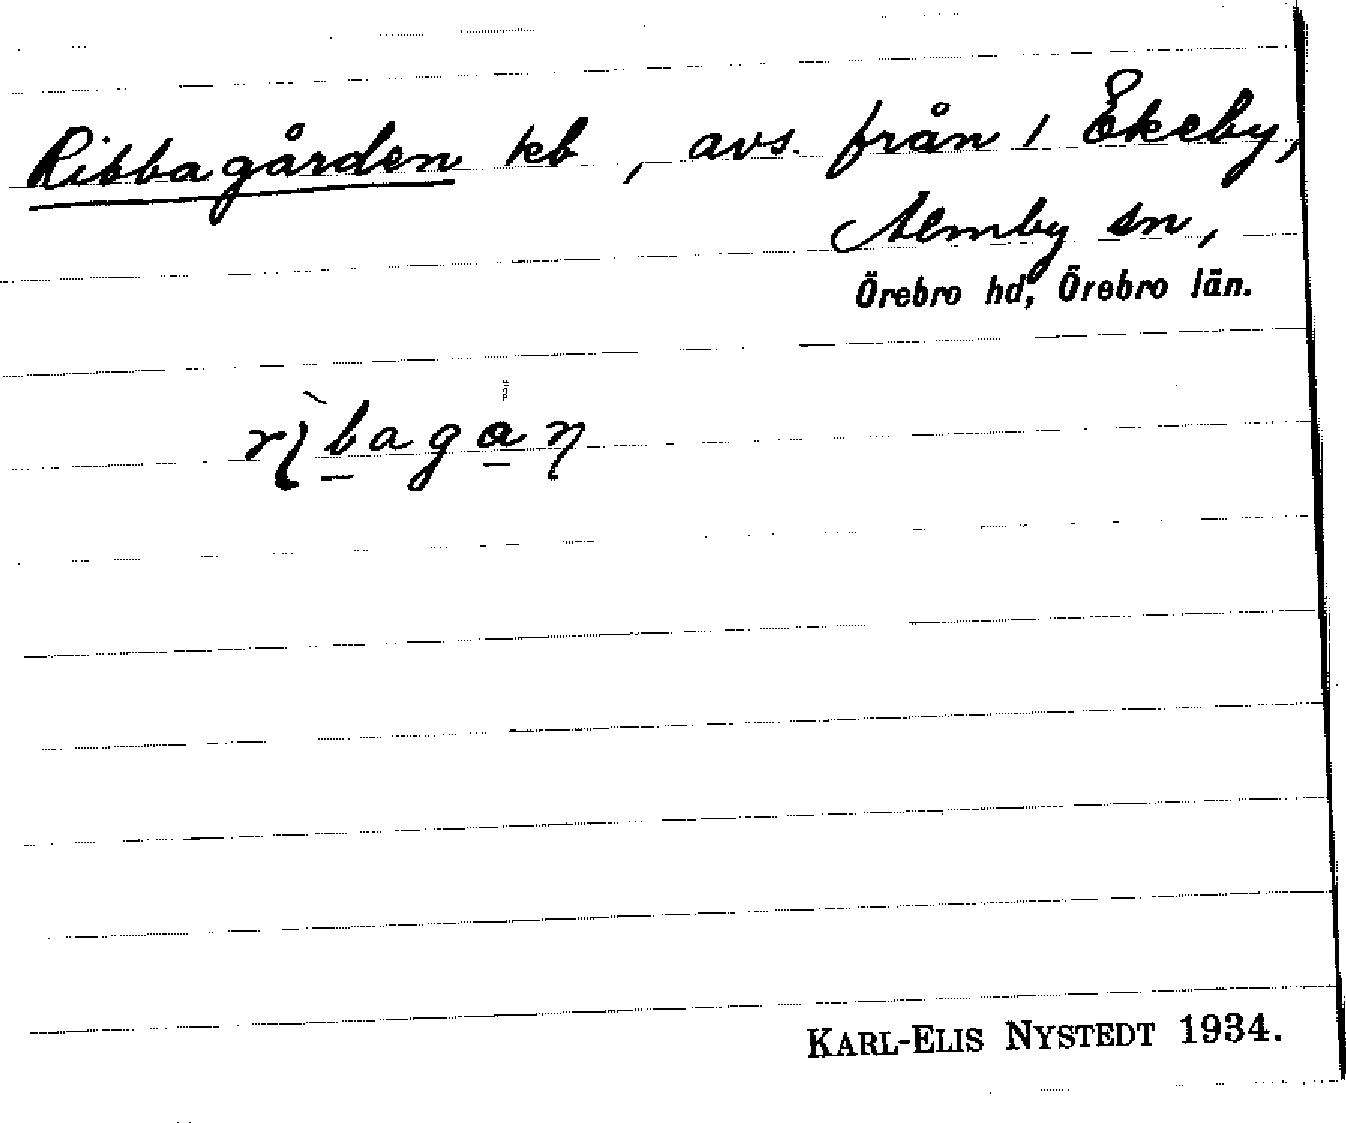 Ribbagården kb, avs. från 1 Ekeby,
Almby sn,
Örebro hd, Örebro län.
KARL-ELIS NYSTEDT 1934.